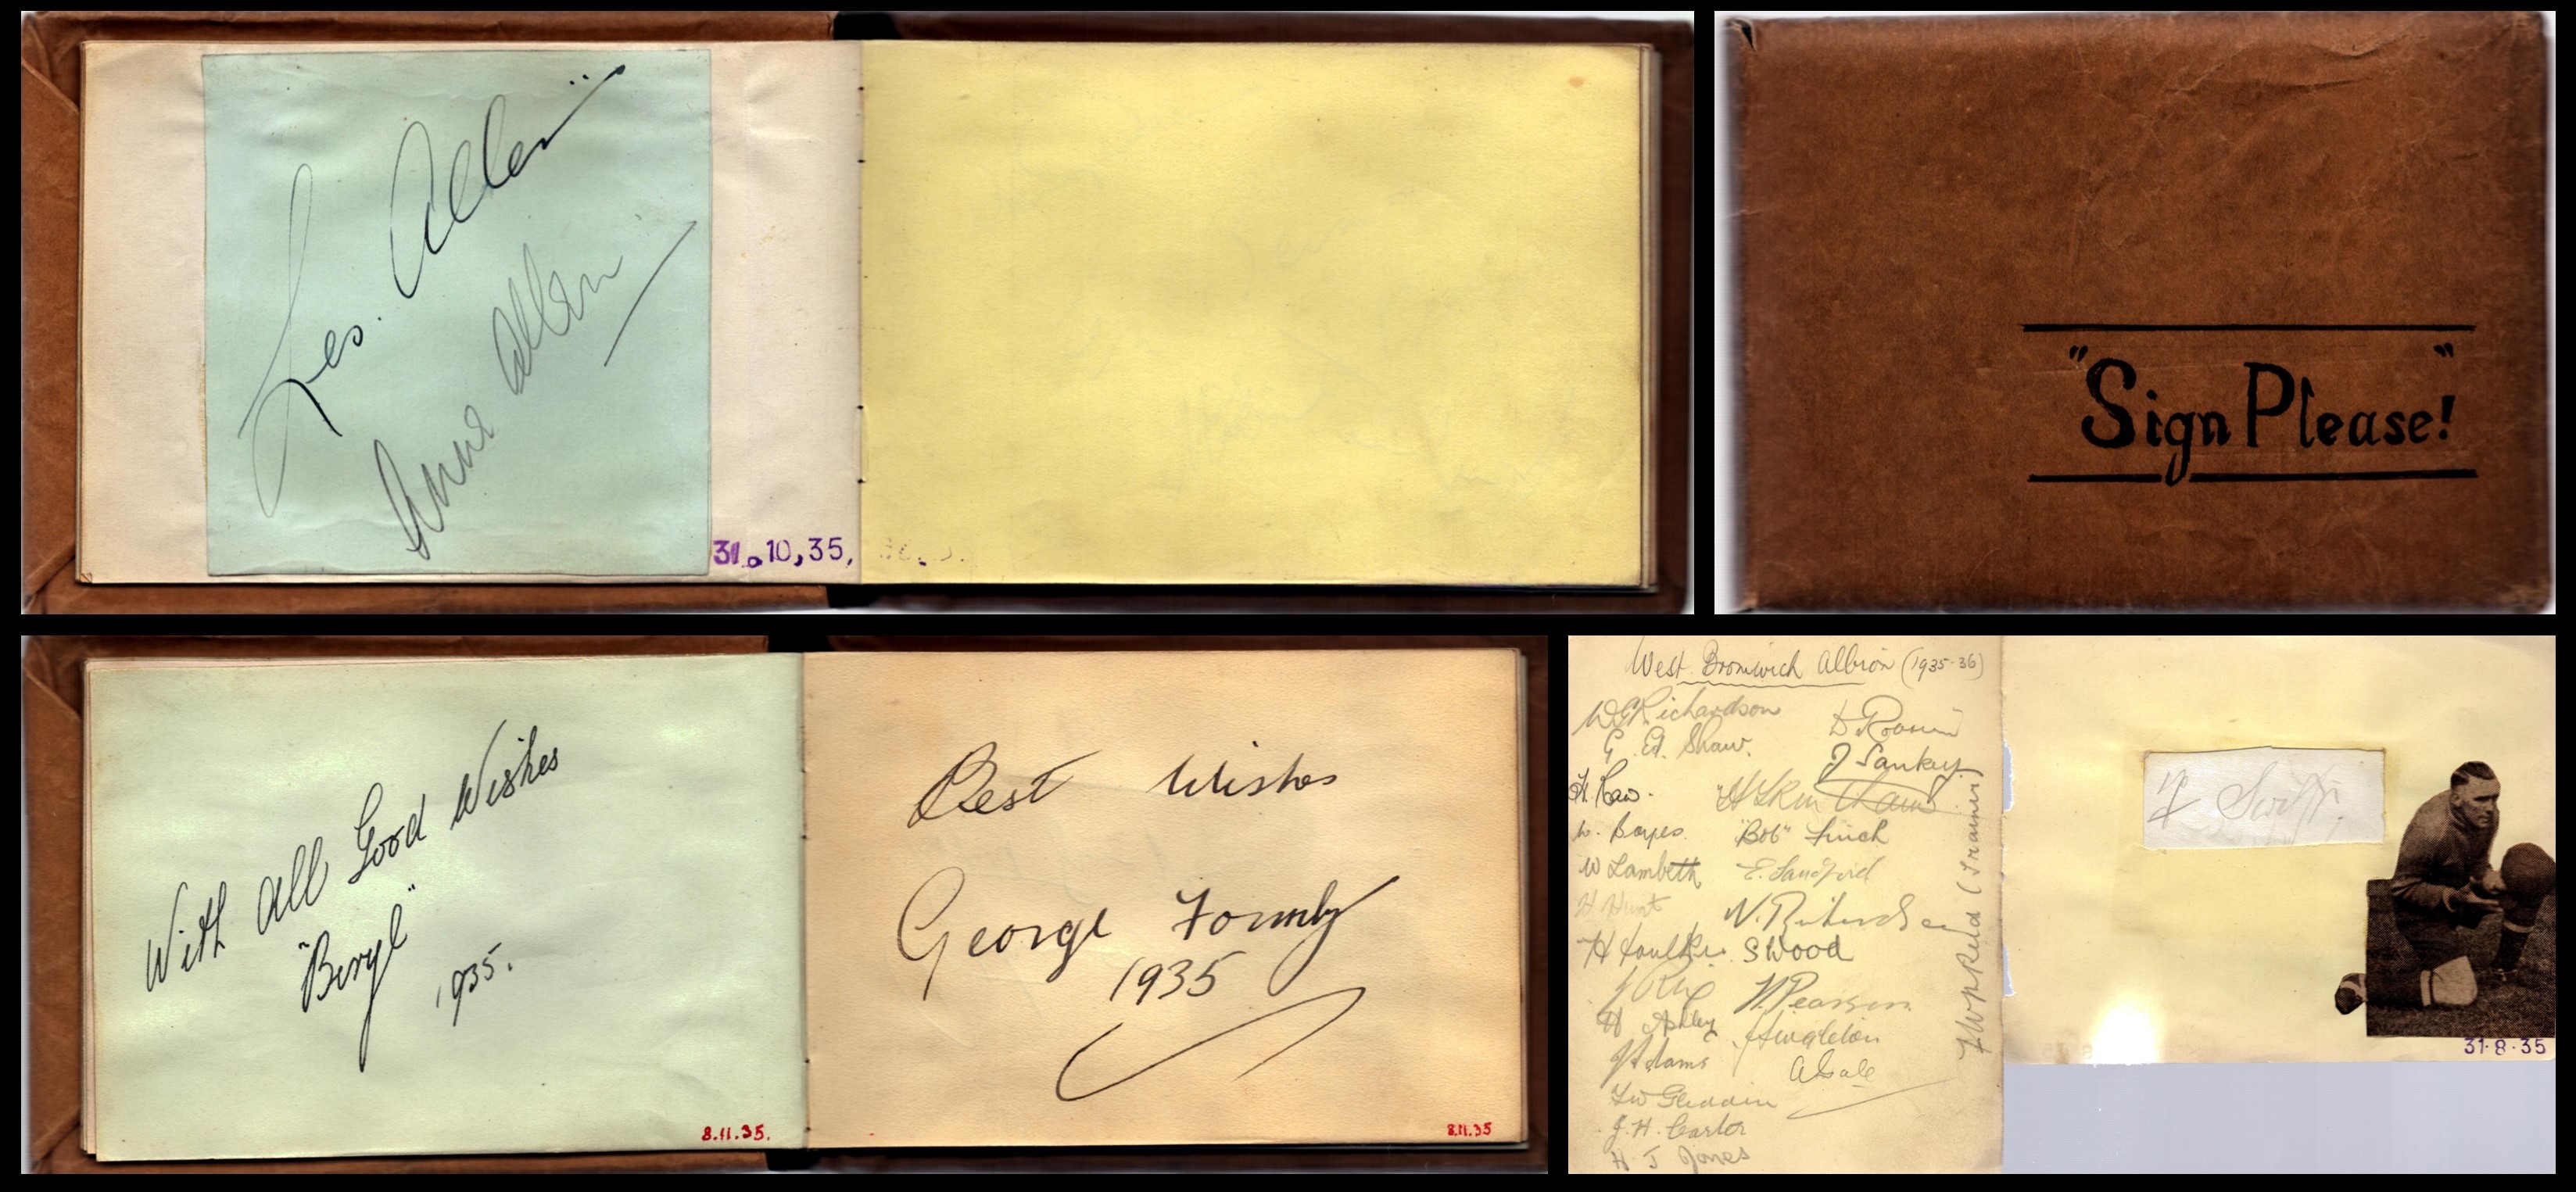 Les. Allen
Anne Allen
31.10,35,
"Sign Please!"
With All Good Wishes
"Beryl"
1935.
8.11.35.
Best Wishes
George Formby
1935
8.11.35
West Bromwich Albion (1935-36)
W G Richardson
G. Ed. Shaw.
W. Boyes.
W Lambeth
H Hunt
H Ashley
J Adams
J. H. Carter
H J Jones
J Sankey
"Bob" Finch
E. Sandford
N. Richardson
S Wood
H. Pearson
(Trainer)
Swift
31·8·35